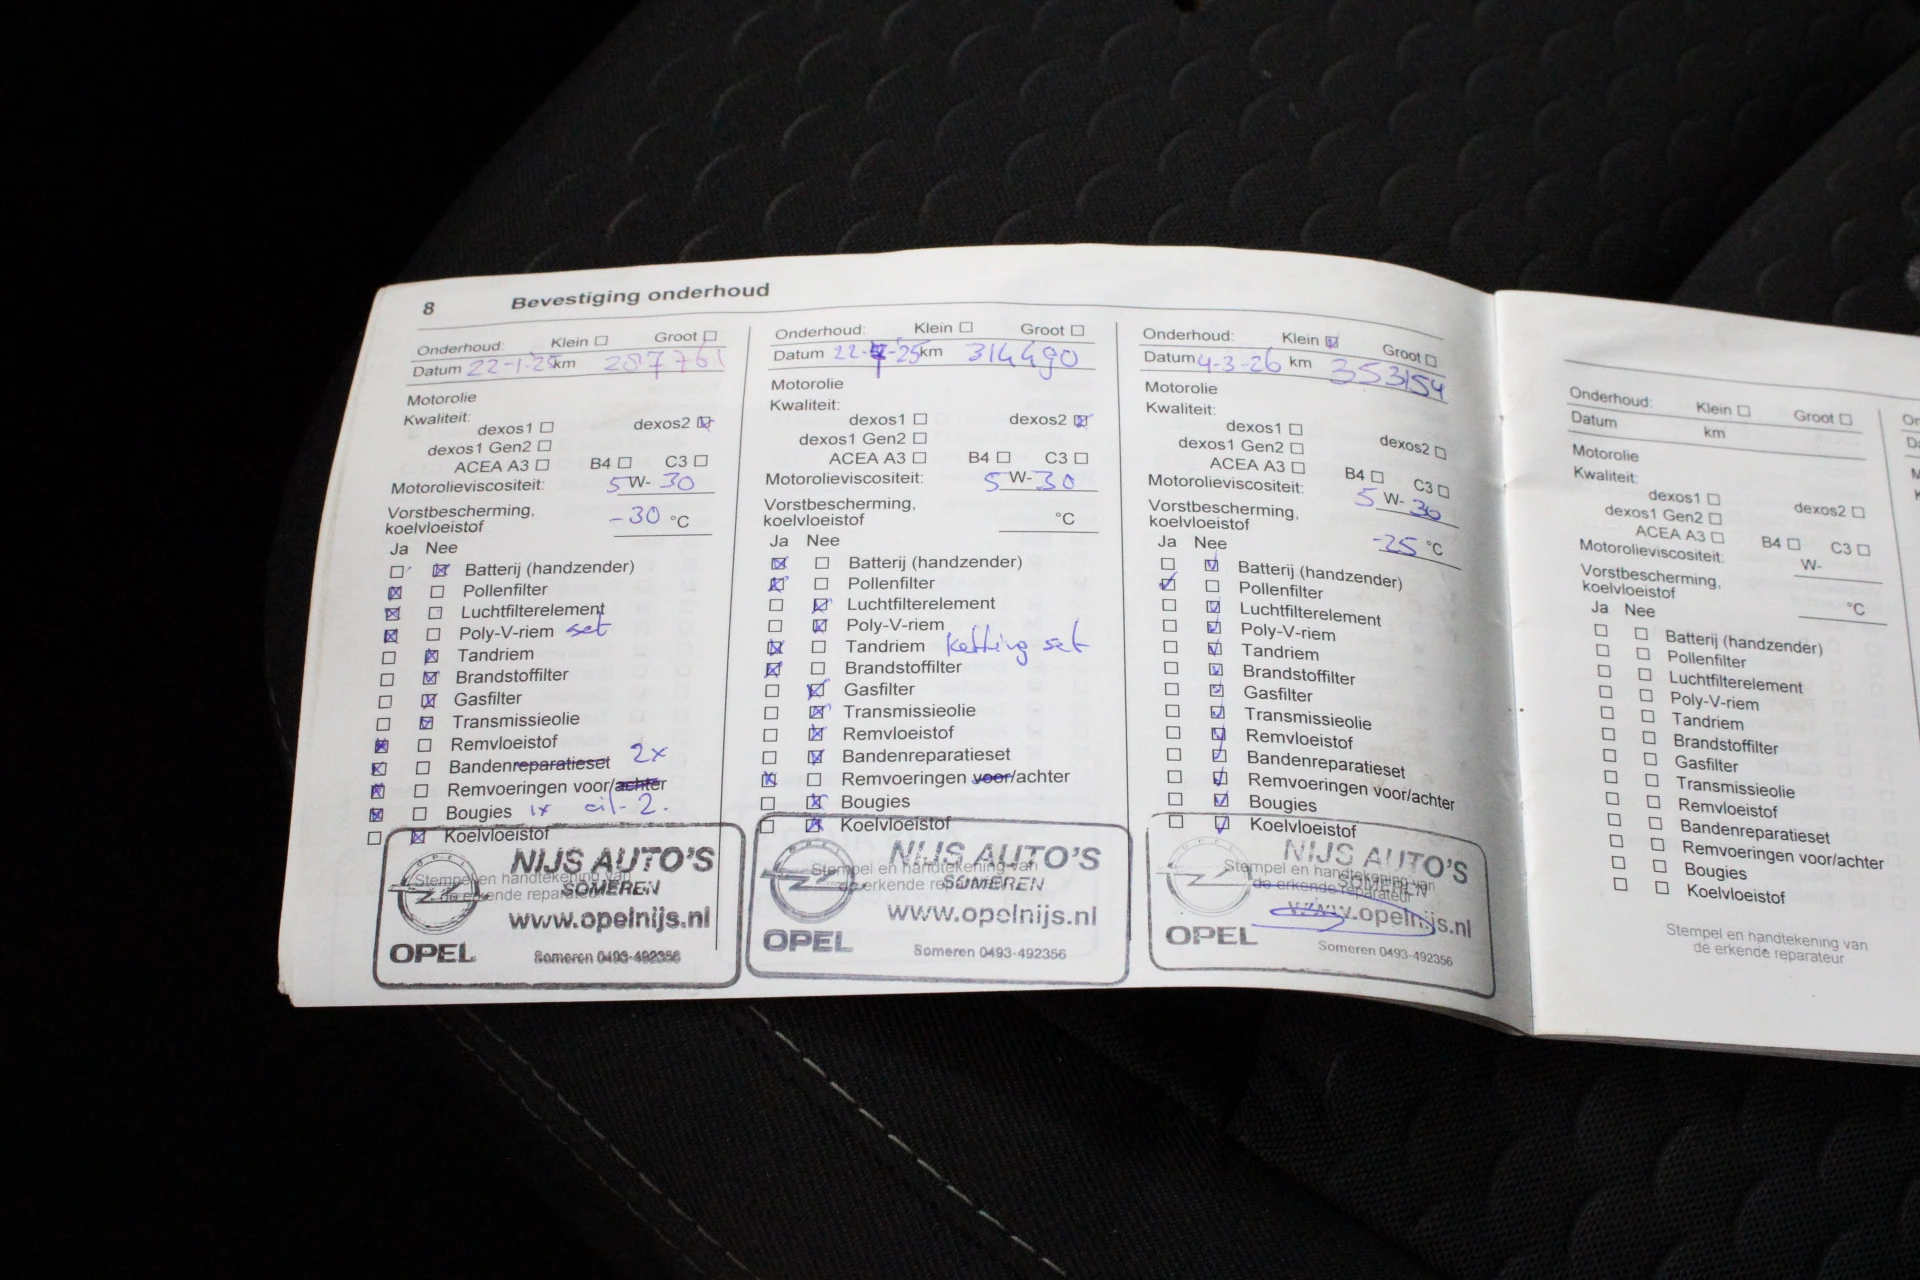 8 Bevestiging onderhoud
Onderhoud: Klein Groot
Datum 22-1-25 km 287761
Motorolie
Kwaliteit:
dexos1 dexos2
dexos1 Gen2
ACEA A3 B4 C3
Motorolieviscositeit: 5 W- 30
Vorstbescherming,
koelvloeistof -30 °C
Ja Nee
Batterij (handzender)
Pollenfilter
Luchtfilterelement
Poly-V-riem set
Tandriem
Brandstoffilter
Gasfilter
Transmissieolie
Remvloeistof
Bandenreparatieset 2x
Remvoeringen voor/achter
Bougies 1x cil-2.
Koelvloeistof
Stempel en handtekening van
de erkende reparateur
NIJS AUTO'S
SOMEREN
www.opelnijs.nl
OPEL Someren 0493-492356
Onderhoud: Klein Groot
Datum 22-7-25 km 314490
Motorolie
Kwaliteit:
dexos1 dexos2
dexos1 Gen2
ACEA A3 B4 C3
Motorolieviscositeit: 5 W- 30
Vorstbescherming,
koelvloeistof °C
Ja Nee
Batterij (handzender)
Pollenfilter
Luchtfilterelement
Poly-V-riem
Tandriem ketting set
Brandstoffilter
Gasfilter
Transmissieolie
Remvloeistof
Bandenreparatieset
Remvoeringen voor/achter
Bougies
Koelvloeistof
Stempel en handtekening van
de erkende reparateur
NIJS AUTO'S
SOMEREN
www.opelnijs.nl
OPEL Someren 0493-492356
Onderhoud: Klein Groot
Datum 4-3-26 km 353154
Motorolie
Kwaliteit:
dexos1 dexos2
dexos1 Gen2
ACEA A3 B4 C3
Motorolieviscositeit: 5 W- 30
Vorstbescherming,
koelvloeistof -25 °C
Ja Nee
Batterij (handzender)
Pollenfilter
Luchtfilterelement
Poly-V-riem
Tandriem
Brandstoffilter
Gasfilter
Transmissieolie
Remvloeistof
Bandenreparatieset
Remvoeringen voor/achter
Bougies
Koelvloeistof
Stempel en handtekening van
de erkende reparateur
NIJS AUTO'S
SOMEREN
www.opelnijs.nl
OPEL Someren 0493-492356
Onderhoud: Klein Groot
Datum km
Motorolie
Kwaliteit:
dexos1 dexos2
dexos1 Gen2
ACEA A3 B4 C3
Motorolieviscositeit: W-
Vorstbescherming,
koelvloeistof °C
Ja Nee
Batterij (handzender)
Pollenfilter
Luchtfilterelement
Poly-V-riem
Tandriem
Brandstoffilter
Gasfilter
Transmissieolie
Remvloeistof
Bandenreparatieset
Remvoeringen voor/achter
Bougies
Koelvloeistof
Stempel en handtekening van
de erkende reparateur